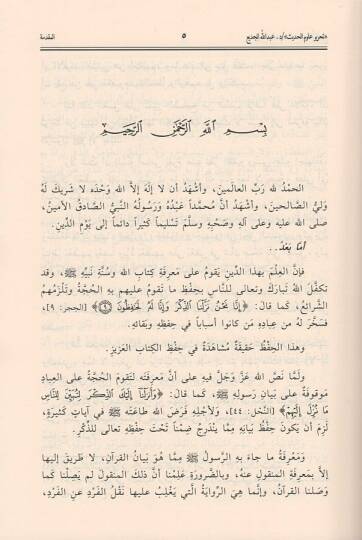 «تحرير علوم الحديث» أ.د. عبدالله الجديع
٥
المقدمة
بسم الله الرحمن الرحيم
الحمدُ لله رَبِّ العالَمينَ، وأشهَدُ أن لا إلَهَ إلاَّ الله وَحْدَه لا شَريكَ لَهُ
وَليُّ الصَّالحينَ، وأشْهَدُ أنَّ مُحمَّداً عَبْدُهُ وَرَسُولُهُ النبيُّ الصَّادقُ الأمينُ،
صلى الله عليه وعلى آلهِ وصَحْبِهِ وسلَّمَ تَسْليماً كَثيراً دائماً إلى يَوْمِ الدِّينِ.
أمّا بَعْدُ..
فإنَّ العِلْمَ بهذا الدِّينِ يَقومُ على مَعرِفَةِ كِتابِ الله وسُنَّةِ نَبيِّهِ ﷺ، وقد
تكفَّلَ اللهُ تَبارَكَ وتعالى للنَّاسِ بحِفظِ ما تَقومُ عليهم بهِ الحُجَّةُ وتلْزَمُهم
الشَّرائعُ، كَما قالَ: ﴿إِنَّا نَحْنُ نَزَّلْنَا الذِّكْرَ وَإِنَّا لَهُ لَحَافِظُونَ ۝٩﴾ [الحِجر: ٩]،
فسَخَّرَ لَهُ من عِبادِهِ مَن كانوا أسباباً في حِفظِهِ ونَقائهِ.
وهذا الحِفْظُ حَقيقَةٌ مُشاهَدَةٌ في حِفْظِ الكِتابِ العَزيزِ.
ولَمَّا نَصَّ الله عزَّ وَجَلَّ فيهِ على أنَّ مَعرِفَتَه لتَقومَ الحُجَّةُ على العِبادِ
مَوقوفَةٌ على بَيانِ رَسولِهِ ﷺ، كما قالَ: ﴿وَأَنزَلْنَا إِلَيْكَ الذِّكْرَ لِتُبَيِّنَ لِلنَّاسِ
مَا نُزِّلَ إِلَيْهِمْ﴾ [النَّحل: ٤٤]، ولأجْلِهِ فَرَضَ الله طاعَتَه ﷺ في آياتٍ كَثيرَةٍ،
لَزِمَ أن يَكونَ حِفْظُ بَيانِهِ مِمَّا يَندَرِجُ ضِمْناً تَحْتَ حِفْظِهِ تعالى للذِّكْرِ.
ومَعْرِفَةُ ما جاءَ بهِ الرَّسولُ ﷺ مِمَّا هوَ بَيانُ القرآنِ، لا طَريقَ إليها
إلاَّ بمَعرِفَةِ المنقولِ عنهُ، وبالضَّرورَةِ عَلِمْنا أنَّ ذلكَ المنقولَ لم يَصِلْنا كَما
وَصَلَنا القرآنُ، وإنَّما هِيَ الرِّوايَةُ الَّتي يَغْلِبُ عليها نَقْلُ الفَرْدِ عنِ الفَرْدِ،